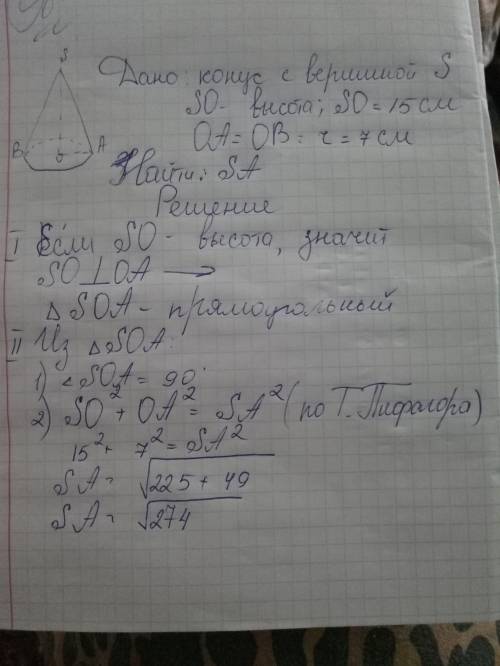 S
B O A
Дано: конус с вершиной S
SO - высота; SO = 15 см
OA = OB = r = 7 см
Найти: SA
Решение
I Если SO - высота, значит
SO⊥OA →
△SOA - прямоугольный
II Из △SOA:
1) ∠SOA = 90°
2) SO² + OA² = SA² (по Т. Пифагора)
15² + 7² = SA²
SA = √225 + 49
SA = √274